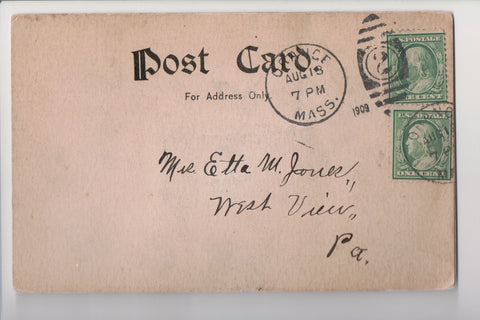 Post Card
For Address Only.
ORANGE
AUG 18
7 PM
MASS.
1909
2
U.S. POSTAGE
ONE CENT
U.S. POSTAGE
ONE CENT
Mrs Etta M. Jones,
West View,
Pa.